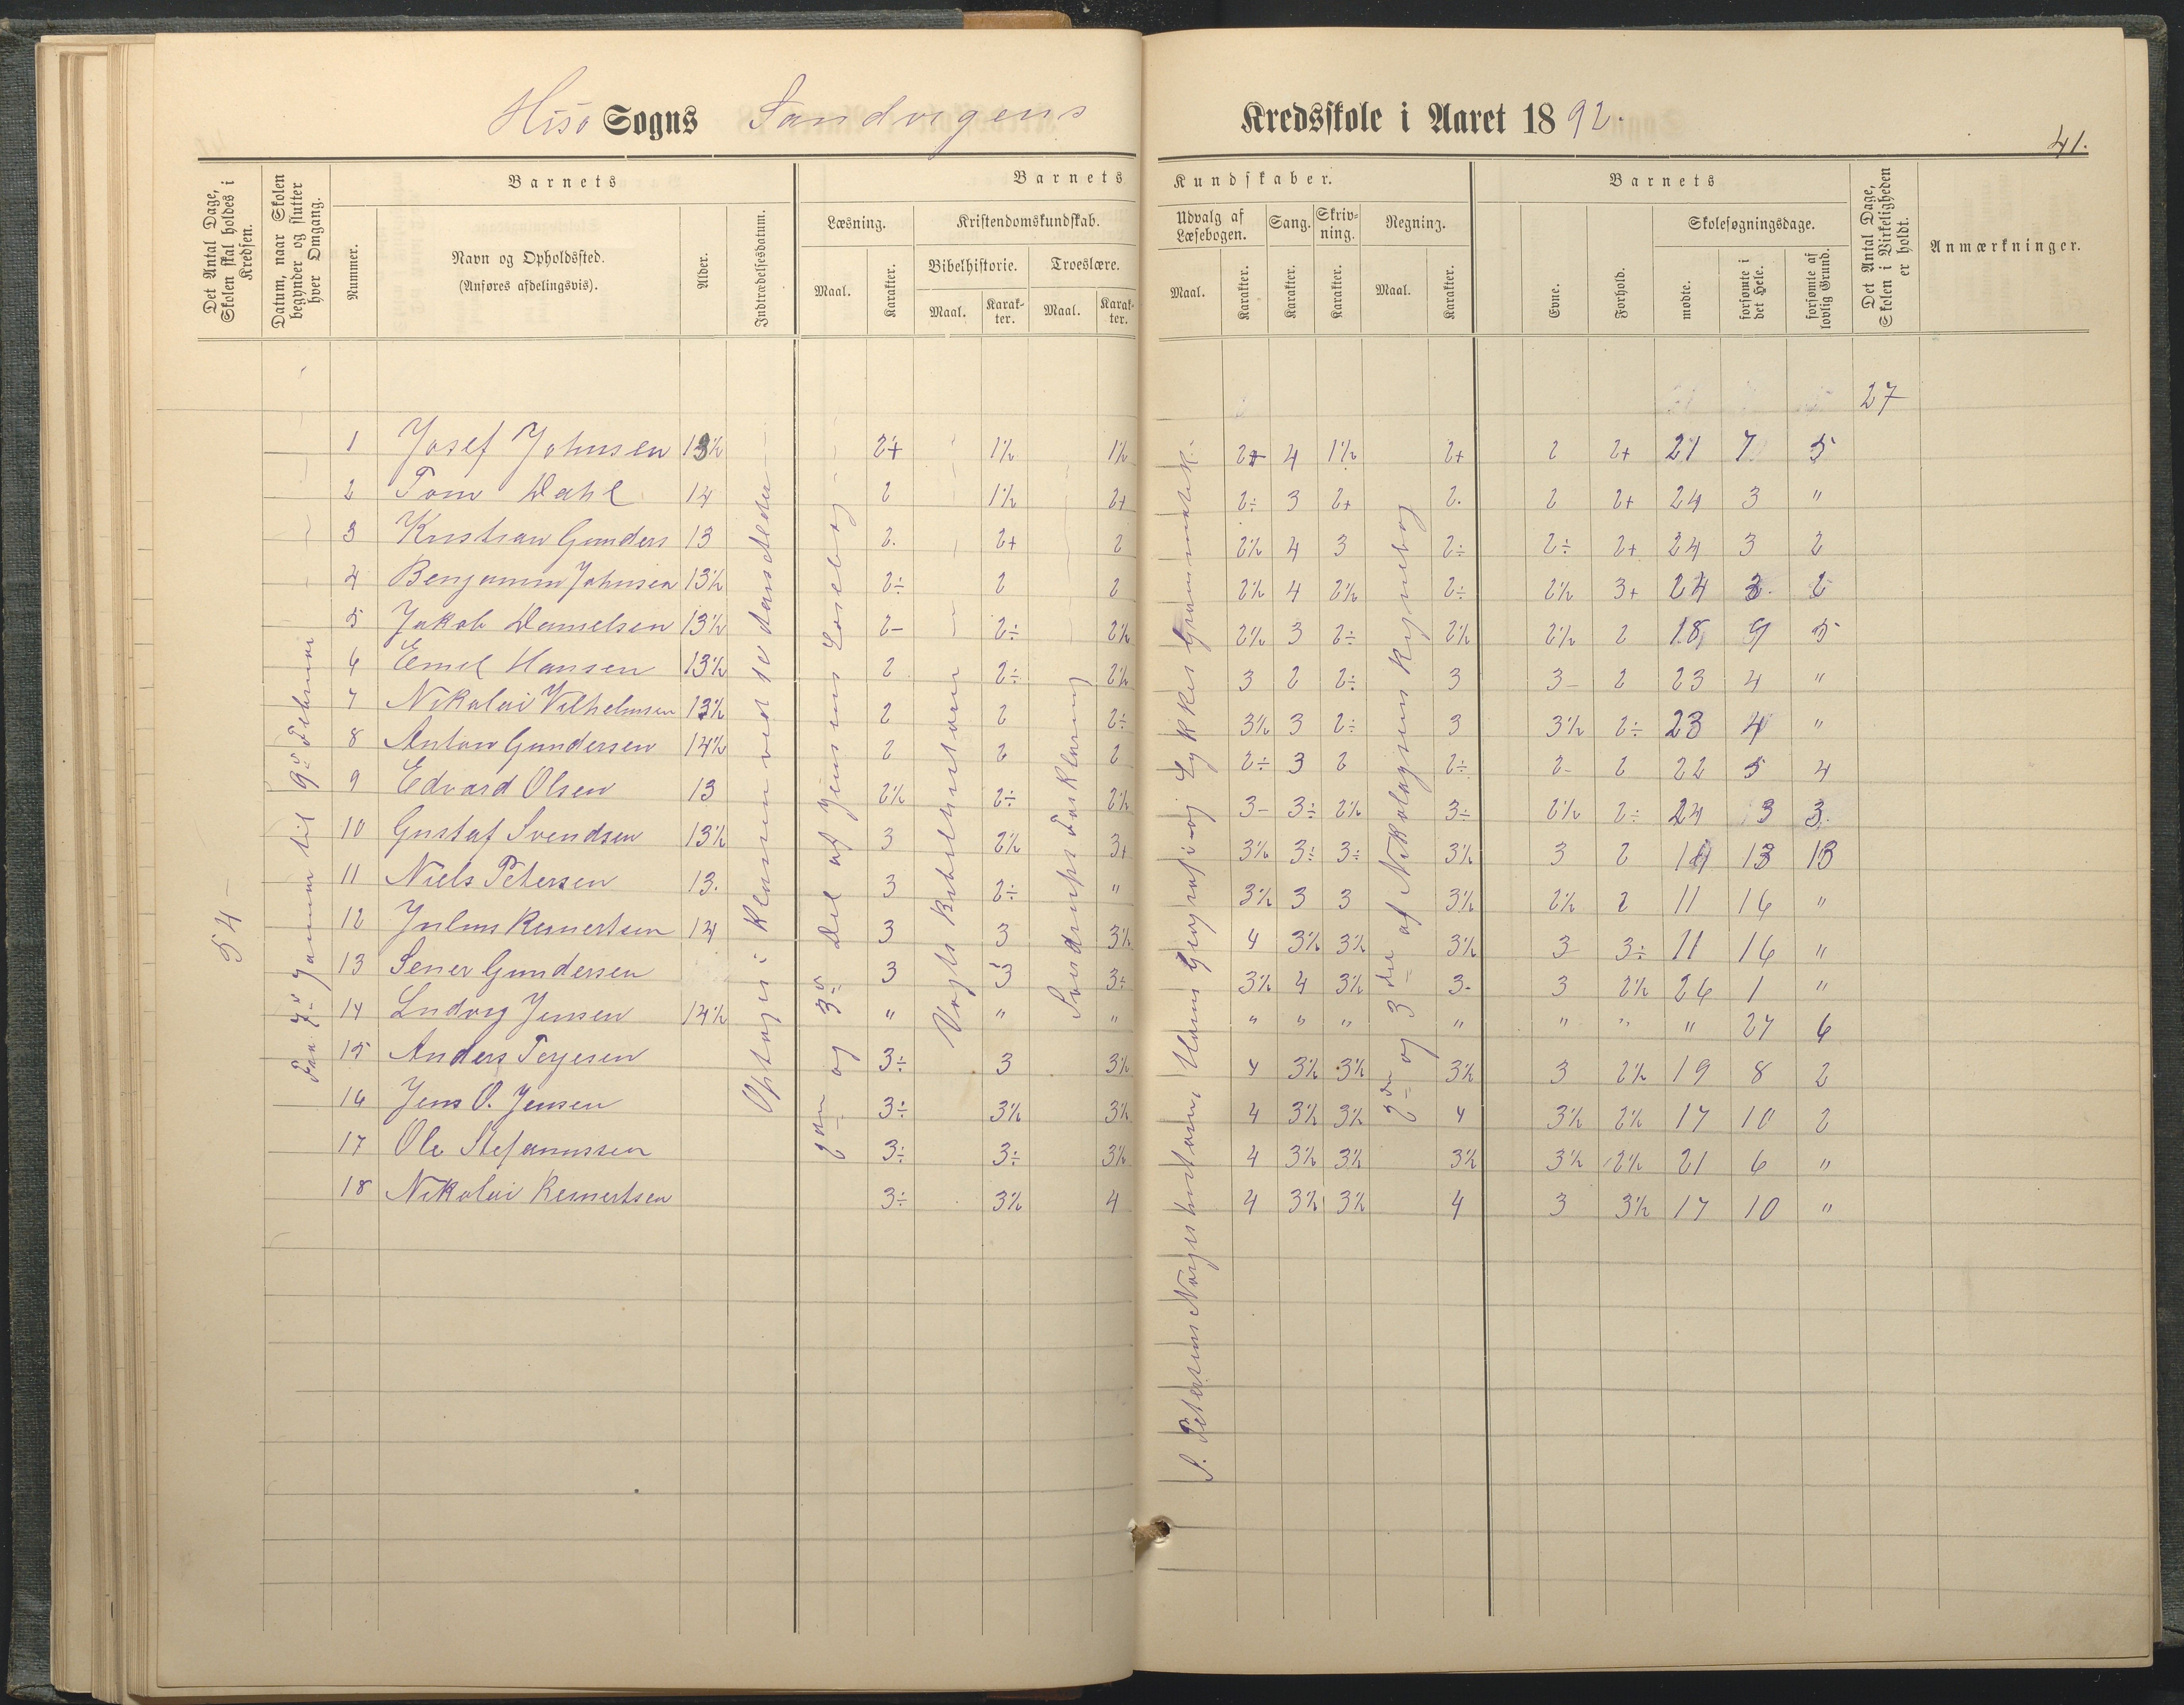 Hisø Sogns Sandvigens Kredsskole i Aaret 1892.
41.
Det Antal Dage, Skolen skal holdes i Kredsen.
Datum, naar Skolen begynder og slutter hver Omgang.
Barnets
Nummer.
Navn og Opholdssted.
(Anføres afdelingsvis).
Alder.
Indtrædelsesdatum.
Barnets Kundskaber.
Læsning.
Maal.
Karakter.
Kristendomskundskab.
Bibelhistorie.
Maal.
Karakter.
Troeslære.
Maal.
Karakter.
Udvalg af Læsebogen.
Maal.
Karakter.
Sang.
Karakter.
Skrivning.
Karakter.
Regning.
Maal.
Karakter.
Barnets
Evne.
Forhold.
Skolesøgningsdage.
mødte.
forsømte i det Hele.
forsømte af lovlig Grund.
Det Antal Dage, Skolen i Virkeligheden er holdt.
Anmærkninger.
27
54
Fra 7de Januar til 9de Februar
Optagen i Klassen ved
2den og 3de Del af Jensens Læsebog
Vogts Bibelhistorie
Sverdrups Forklaring
S. Petersens Norgeshistorie, Geografi og Lykkes Grammatik.
2den og 3die af Nikolaysens Regnebog
1 Josef Johnsen 13½ 2+ 1½ 1½ 2+ 4 1½ 2+ 2 2+ 21 7 5
2 Tom Dahl 14 2 1½ 2+ 2÷ 3 2+ 2. 2 2+ 24 3 "
3 Kristian Gunders 13 2. 2+ 2 2½ 4 3 2÷ 2÷ 2+ 24 3 2
4 Benjamin Johnsen 13½ 2÷ 2 2 2½ 4 2½ 2÷ 2½ 3+ 24 3. 2
5 Jakob Danielsen 13½ 2- 2÷ 2½ 2½ 3 2÷ 2½ 2½ 2 18 9 5
6 Emil Hansen 13½ 2 2÷ 2½ 3 2 2÷ 3 3- 2 23 4 "
7 Nikolai Vilhelmsen 13½ 2 2 2÷ 3½ 3 2÷ 3 3½ 2÷ 23 4 "
8 Anton Gundersen 14½ 2 2 2 2÷ 3 2 2÷ 2- 2 22 5 4
9 Edvard Olsen 13 2½ 2÷ 2½ 3- 3÷ 2½ 3÷ 2½ 2÷ 24 3 3.
10 Gustaf Svendsen 13½ 3 2½ 3+ 3½ 3÷ 3÷ 3½ 3 2 14 13 13
11 Niels Petersen 13. 3 2÷ " 3½ 3 3 3½ 2½ 2 11 16 "
12 Julius Reinertsen 14 3 3 3½ 4 3½ 3½ 3½ 3- 3÷ 11 16 "
13 Sener Gundersen 3 3 3÷ 3½ 4 3½ 3- 3 2½ 26 1 "
14 Ludvig Jensen 14½ " " " " " " " " " " 27 6
15 Anders Terjesen 3÷ 3 3½ 4 3½ 3½ 3½ 3 2½ 19 8 2
16 Jens O. Jensen 3÷ 3½ 3½ 4 3½ 3½ 4 3½ 2½ 17 10 2
17 Ole Stefanussen 3÷ 3÷ 3½ 4 3½ 3½ 3½ 3½ 2½ 21 6 "
18 Nikolai Reinertsen 3÷ 3½ 4 4 3½ 3½ 4 3 3½ 17 10 "